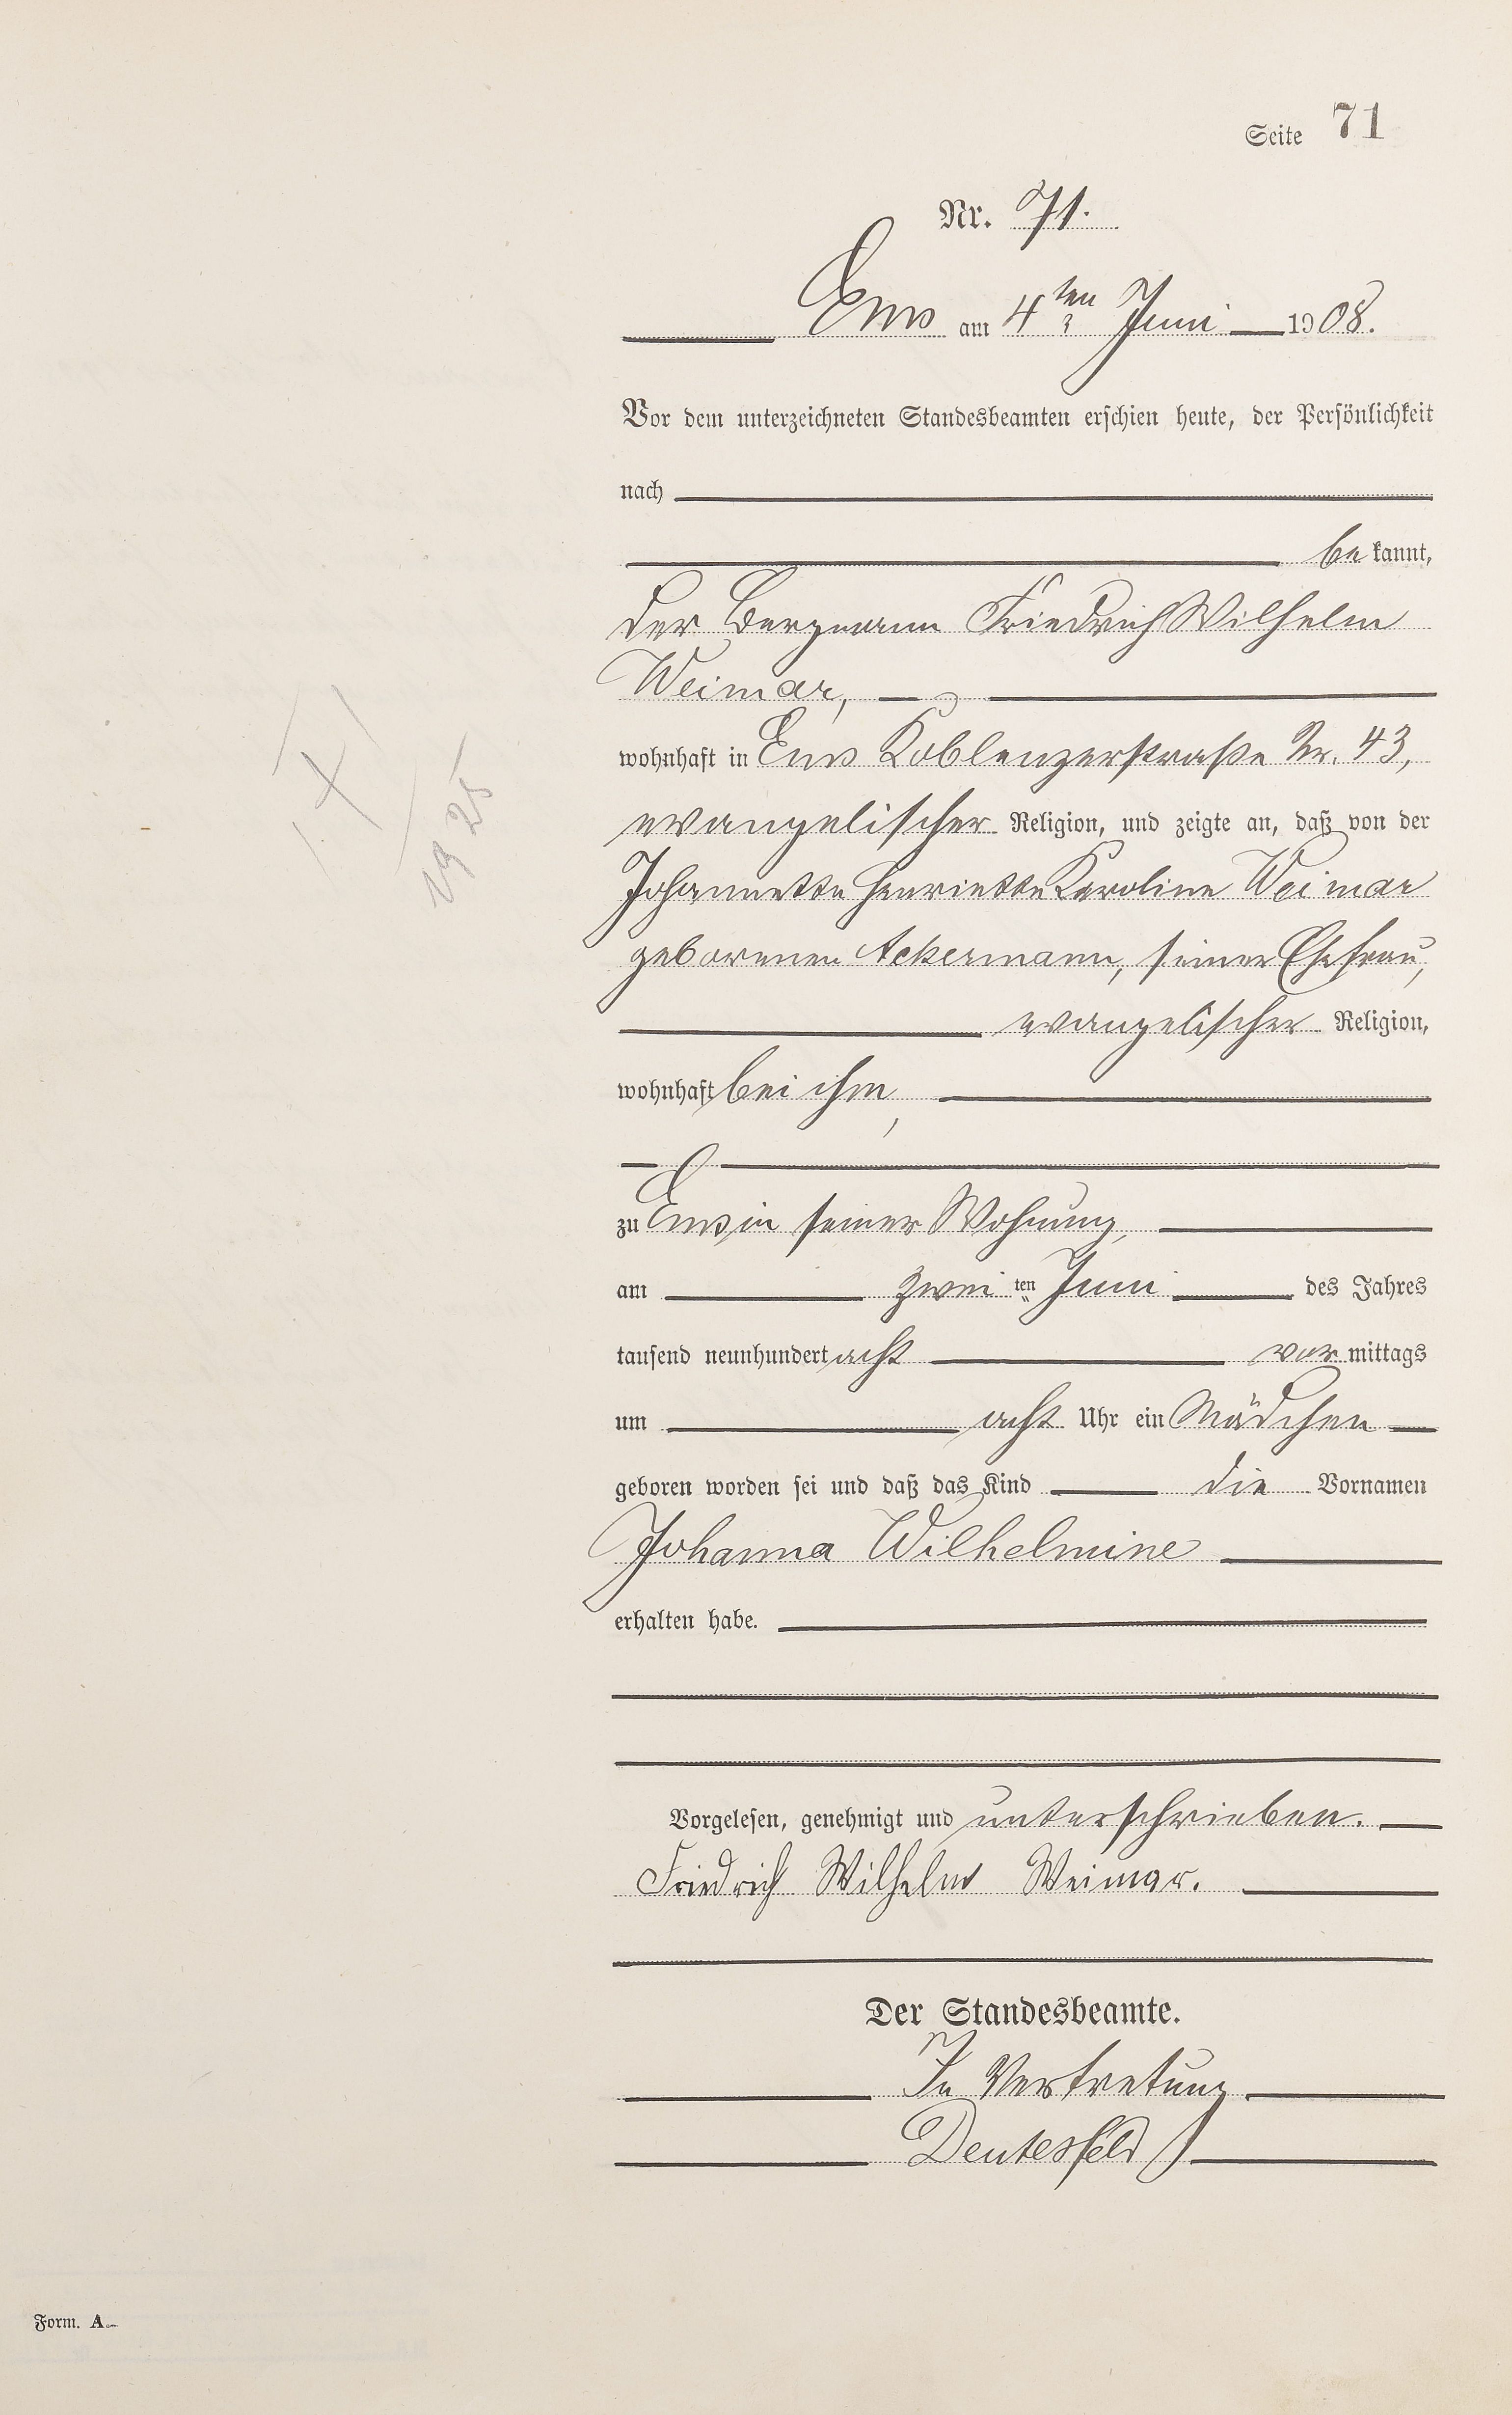 Seite 71
Nr. 71.
Ems am 4ten Juni 1908.
Vor dem unterzeichneten Standesbeamten erschien heute, der Persönlichkeit
nach
be kannt,
der Bergmann Friedrich Wilhelm
Weimar,
wohnhaft in Ems Koblenzerstraße Nr. 43,
evangelischer Religion, und zeigte an, daß von der
Johannette Henriette Karoline Weimar
geborenen Ackermann, seiner Ehefrau,
evangelischer Religion,
wohnhaft bei ihm,
zu Ems, in seiner Wohnung,
am zwei ten Juni des Jahres
tausend neunhundert acht vor mittags
um acht Uhr ein Mädchen
geboren worden sei und daß das Kind die Vornamen
Johanna Wilhelmine
erhalten habe.
Vorgelesen, genehmigt und unterschrieben.
Friedrich Wilhelm Weimar.
Der Standesbeamte.
In Vertretung
Deutesfeld
1925
Form. A.